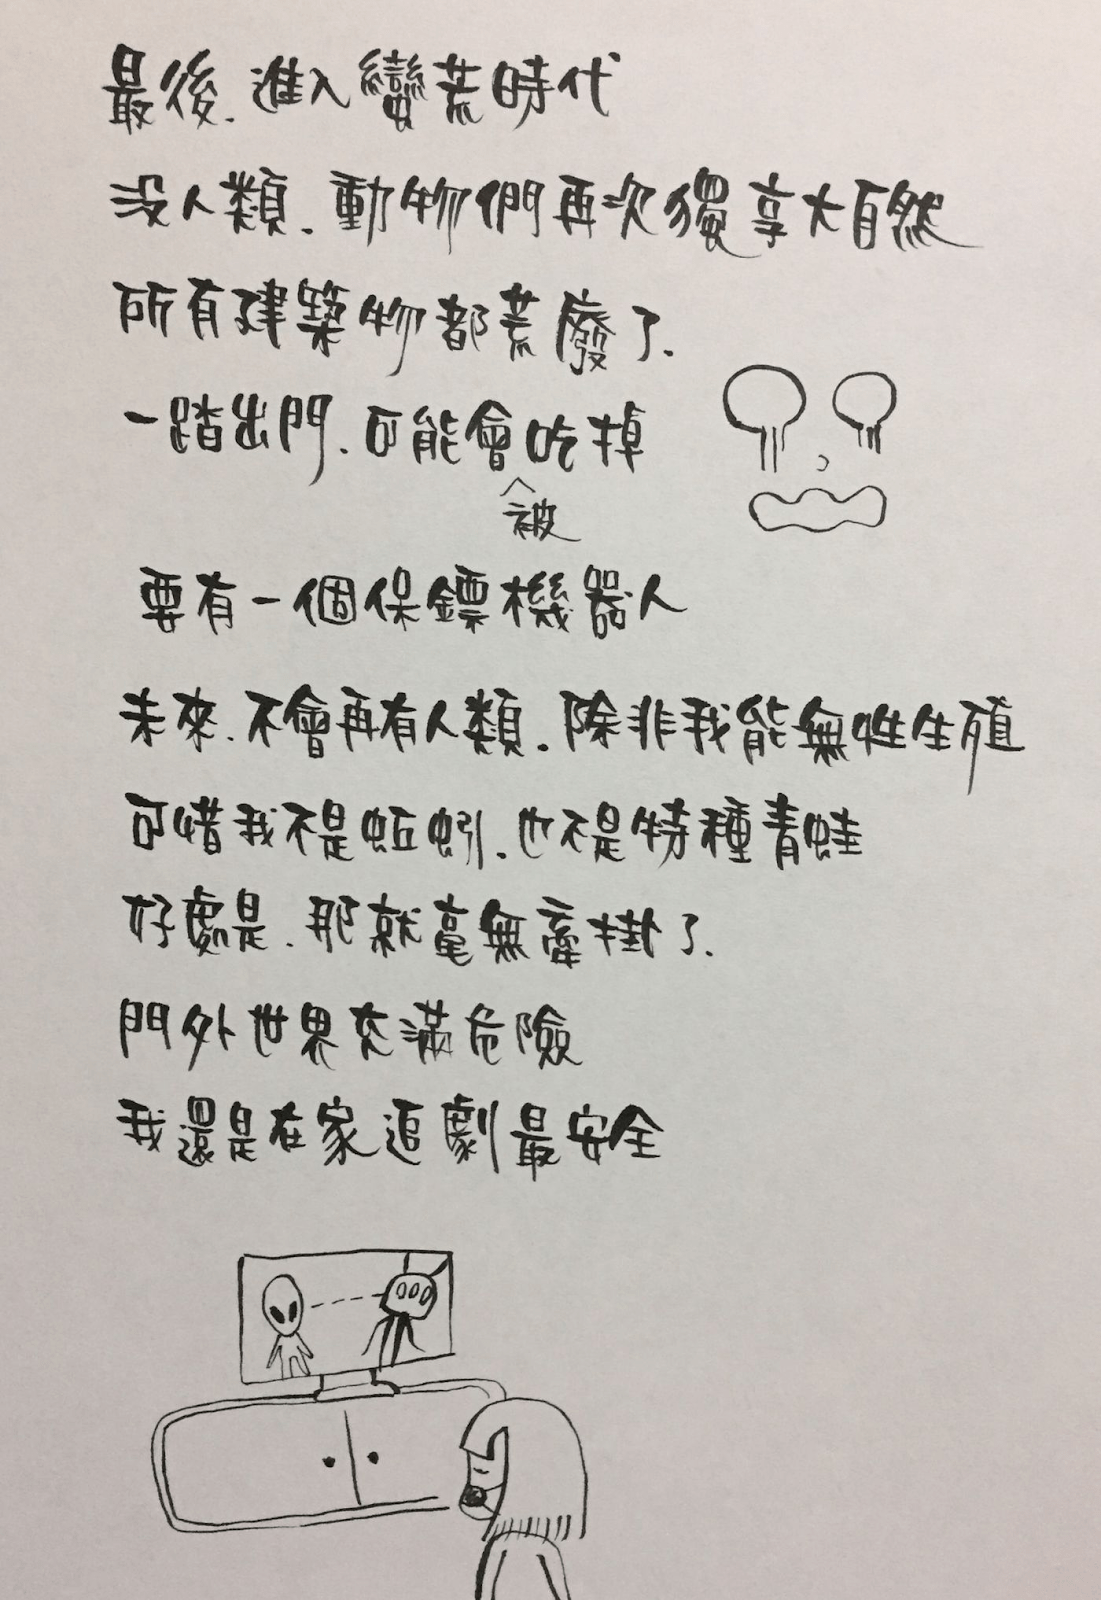 最後. 進入蠻荒時代
沒人類. 動物們再次獨享大自然
所有建築物都荒廢了.
一踏出門. 可能會被吃掉
要有一個保鏢機器人
未來. 不會再有人類. 除非我能無性生殖
可惜我不是蚯蚓. 也不是特種青蛙
好處是. 那就毫無牽掛了.
門外世界充滿危險
我還是在家追劇最安全